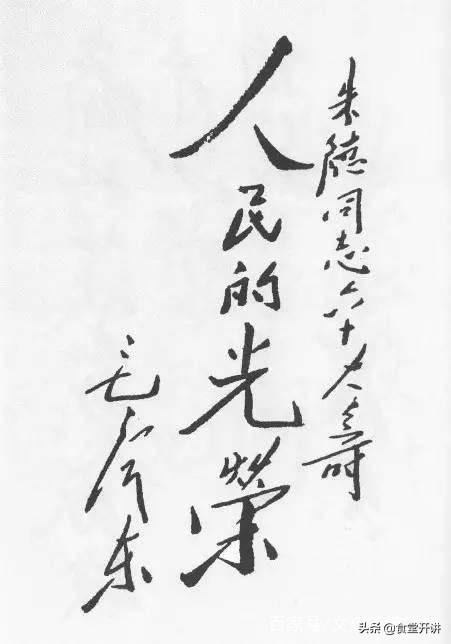 朱德同志六十大寿
人民的光榮
毛泽东
头条 @食堂开讲